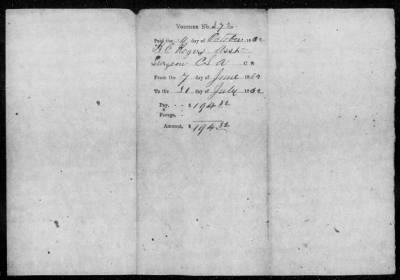 Voucher No. 272
Paid the 9 day of October 1862
H. C. Rogers Asst
Surgeon C S A
From the 7 day of June 1862
To the 31 day of July 1862
Pay, - - $ 194 32
Forage, - -
Amount, $ 194 32